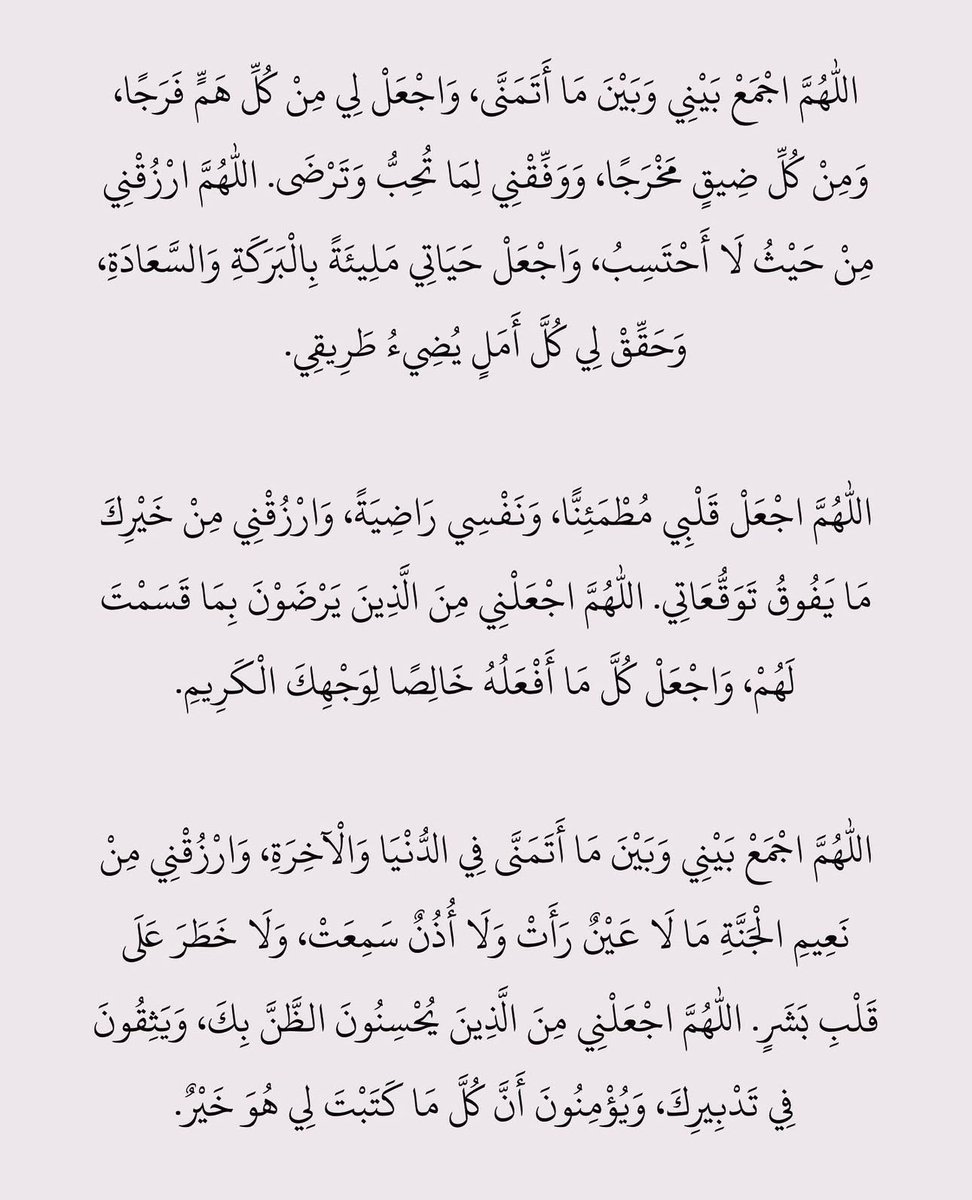 اللّٰهُمَّ اجْمَعْ بَيْنِي وَبَيْنَ مَا أَتَمَنَّى، وَاجْعَلْ لِي مِنْ كُلِّ هَمٍّ فَرَجًا،
وَمِنْ كُلِّ ضِيقٍ مَخْرَجًا، وَوَفِّقْنِي لِمَا تُحِبُّ وَتَرْضَى. اللّٰهُمَّ ارْزُقْنِي
مِنْ حَيْثُ لَا أَحْتَسِبُ، وَاجْعَلْ حَيَاتِي مَلِيئَةً بِالْبَرَكَةِ وَالسَّعَادَةِ،
وَحَقِّقْ لِي كُلَّ أَمَلٍ يُضِيءُ طَرِيقِي.
اللّٰهُمَّ اجْعَلْ قَلْبِي مُطْمَئِنًّا، وَنَفْسِي رَاضِيَةً، وَارْزُقْنِي مِنْ خَيْرِكَ
مَا يَفُوقُ تَوَقُّعَاتِي. اللّٰهُمَّ اجْعَلْنِي مِنَ الَّذِينَ يَرْضَوْنَ بِمَا قَسَمْتَ
لَهُمْ، وَاجْعَلْ كُلَّ مَا أَفْعَلُهُ خَالِصًا لِوَجْهِكَ الْكَرِيمِ.
اللّٰهُمَّ اجْمَعْ بَيْنِي وَبَيْنَ مَا أَتَمَنَّى فِي الدُّنْيَا وَالْآخِرَةِ، وَارْزُقْنِي مِنْ
نَعِيمِ الْجَنَّةِ مَا لَا عَيْنٌ رَأَتْ وَلَا أُذُنٌ سَمِعَتْ، وَلَا خَطَرَ عَلَى
قَلْبِ بَشَرٍ. اللّٰهُمَّ اجْعَلْنِي مِنَ الَّذِينَ يُحْسِنُونَ الظَّنَّ بِكَ، وَيَثِقُونَ
فِي تَدْبِيرِكَ، وَيُؤْمِنُونَ أَنَّ كُلَّ مَا كَتَبْتَ لِي هُوَ خَيْرٌ.